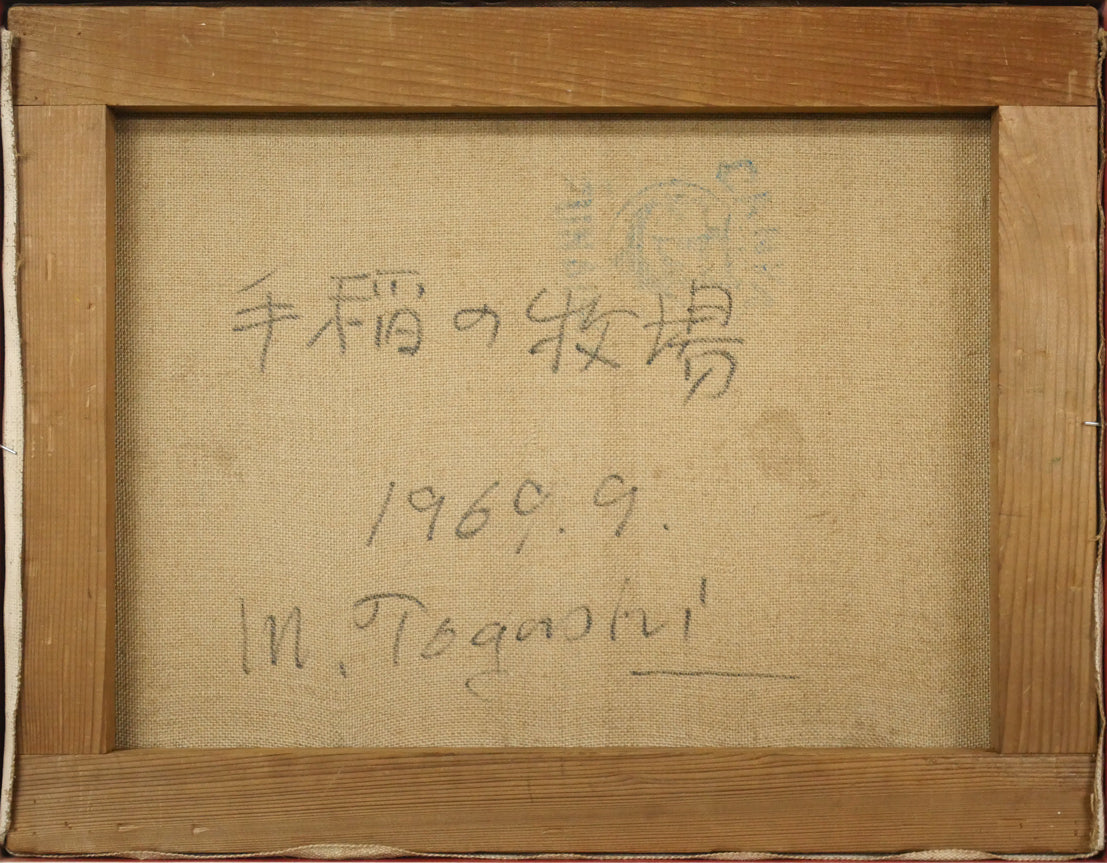 手稲の牧場
1969.9.
M. Togashi